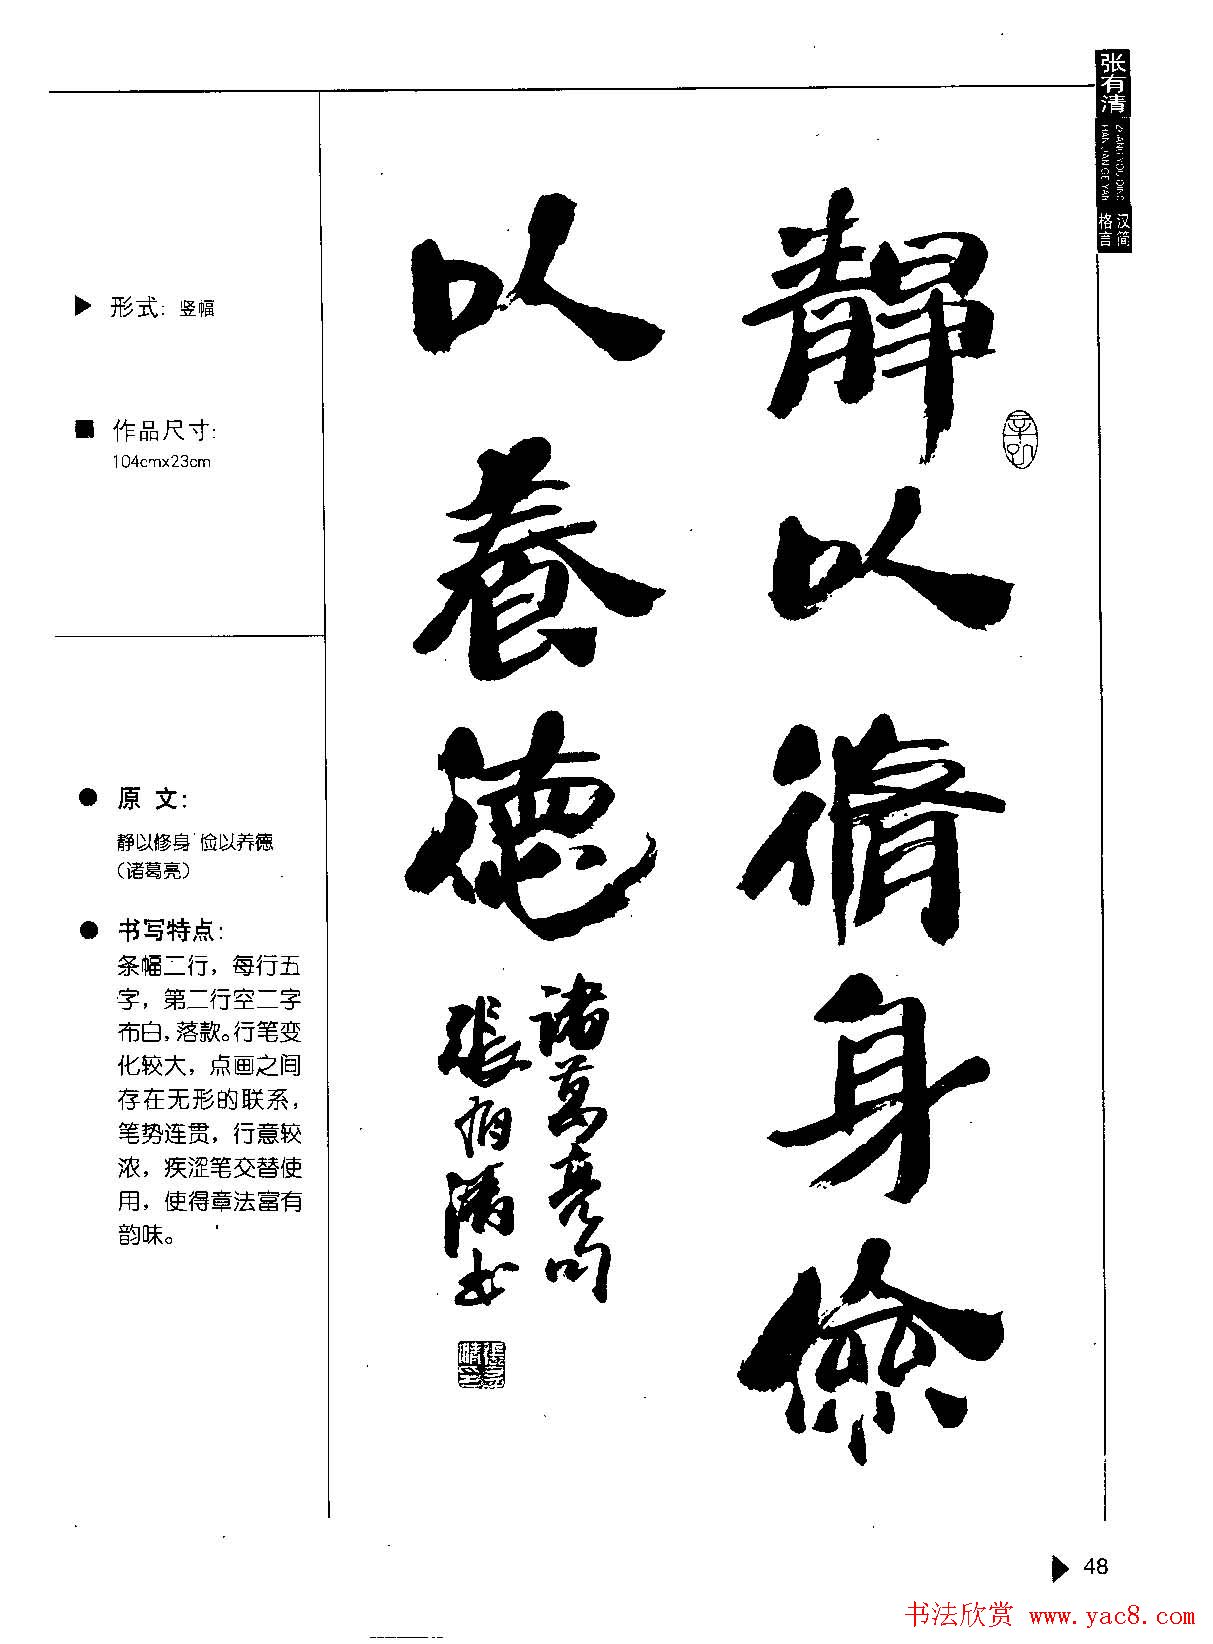 张有清
ZHANG YOU QING
HAN JIAN GE YAN
汉简
格言
静以修身儉
以養德
諸葛亮句
張有清书
▶ 形式: 竖幅
■ 作品尺寸:
104cmx23cm
● 原 文:
静以修身 俭以养德
(诸葛亮)
● 书写特点:
条幅二行，每行五
字，第二行空二字
布白，落款。行笔变
化较大，点画之间
存在无形的联系，
笔势连贯，行意较
浓，疾涩笔交替使
用，使得章法富有
韵味。
▶ 48
书法欣赏 www.yac8.com